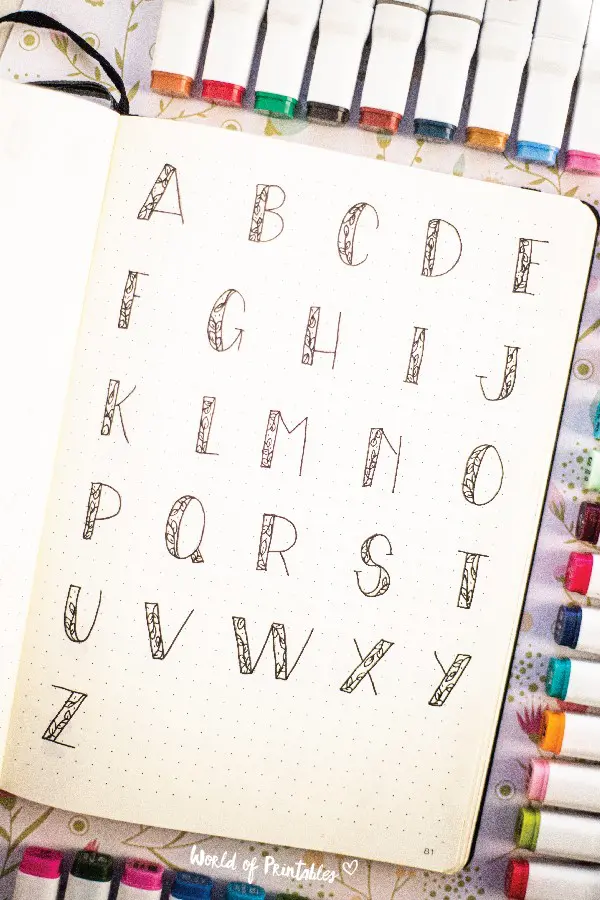 A B C D E
F G H I J
K L M N O
P Q R S T
U V W X Y
Z
81
World of Printables